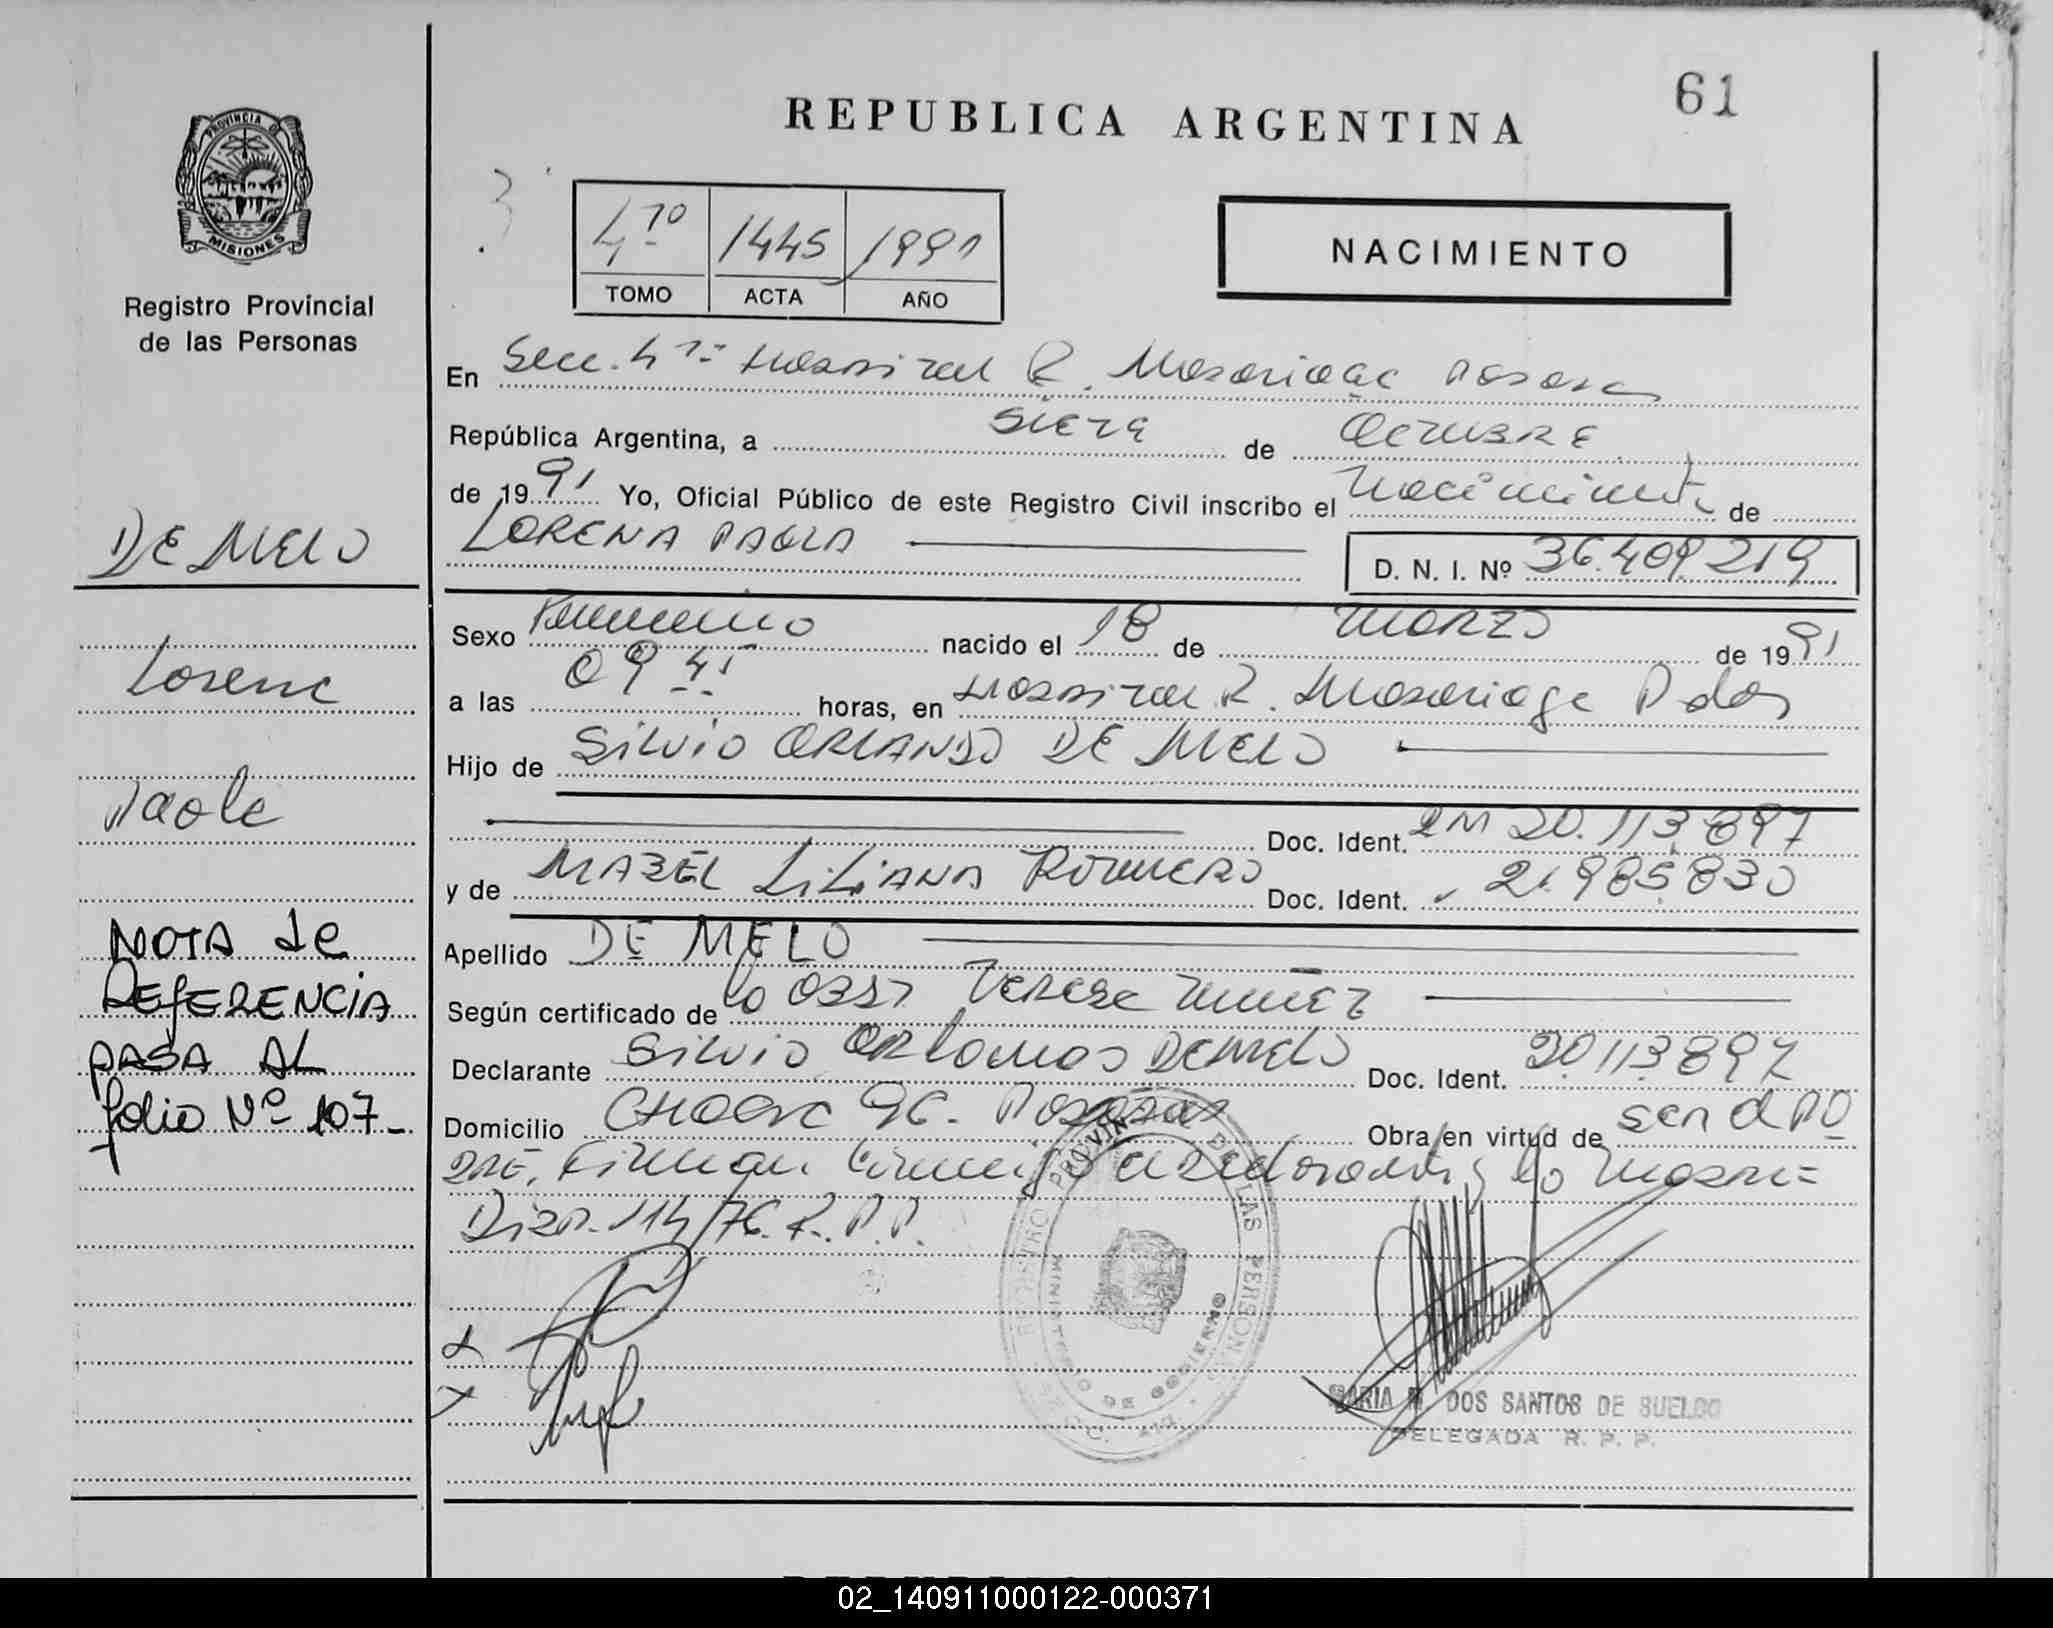 61
REPUBLICA ARGENTINA
PROVINCIA DE
MISIONES
Registro Provincial
de las Personas
4to 1445 1991
TOMO ACTA AÑO
NACIMIENTO
En Secc. 4ta Hospital R. Madariaga Posadas
República Argentina, a siete de Octubre
de 1991 Yo, Oficial Público de este Registro Civil inscribo el nacimiento de
LORENA PAOLA
D. N. I. Nº 36.409.219
Sexo Femenino nacido el 18 de marzo de 1991
a las 09 45 horas, en Hospital R. Madariaga Pdas
Hijo de SILVIO ORLANDO DE MELO
Doc. Ident. DNI 20.113.897
y de MABEL LILIANA ROMERO Doc. Ident. 21.985.830
Apellido DE MELO
Según certificado de la Obst Teresa
Declarante Silvio Orlando DE MELO Doc. Ident. 20.113.897
Domicilio 96. Posadas Obra en virtud de ser el PA
DRE, Firman y la madre
Disp. 114/76. R.P.P.
DE MELO
Lorena
Paola
NOTA de
REFERENCIA
PASA AL
folio Nº 107-
REGISTRO PROVINCIAL DE LAS PERSONAS
MINISTERIO DE GOBIERNO
SECC. 4ta.
MARIA M. DOS SANTOS DE SUELDO
DELEGADA R. P. P.
02_140911000122-000371